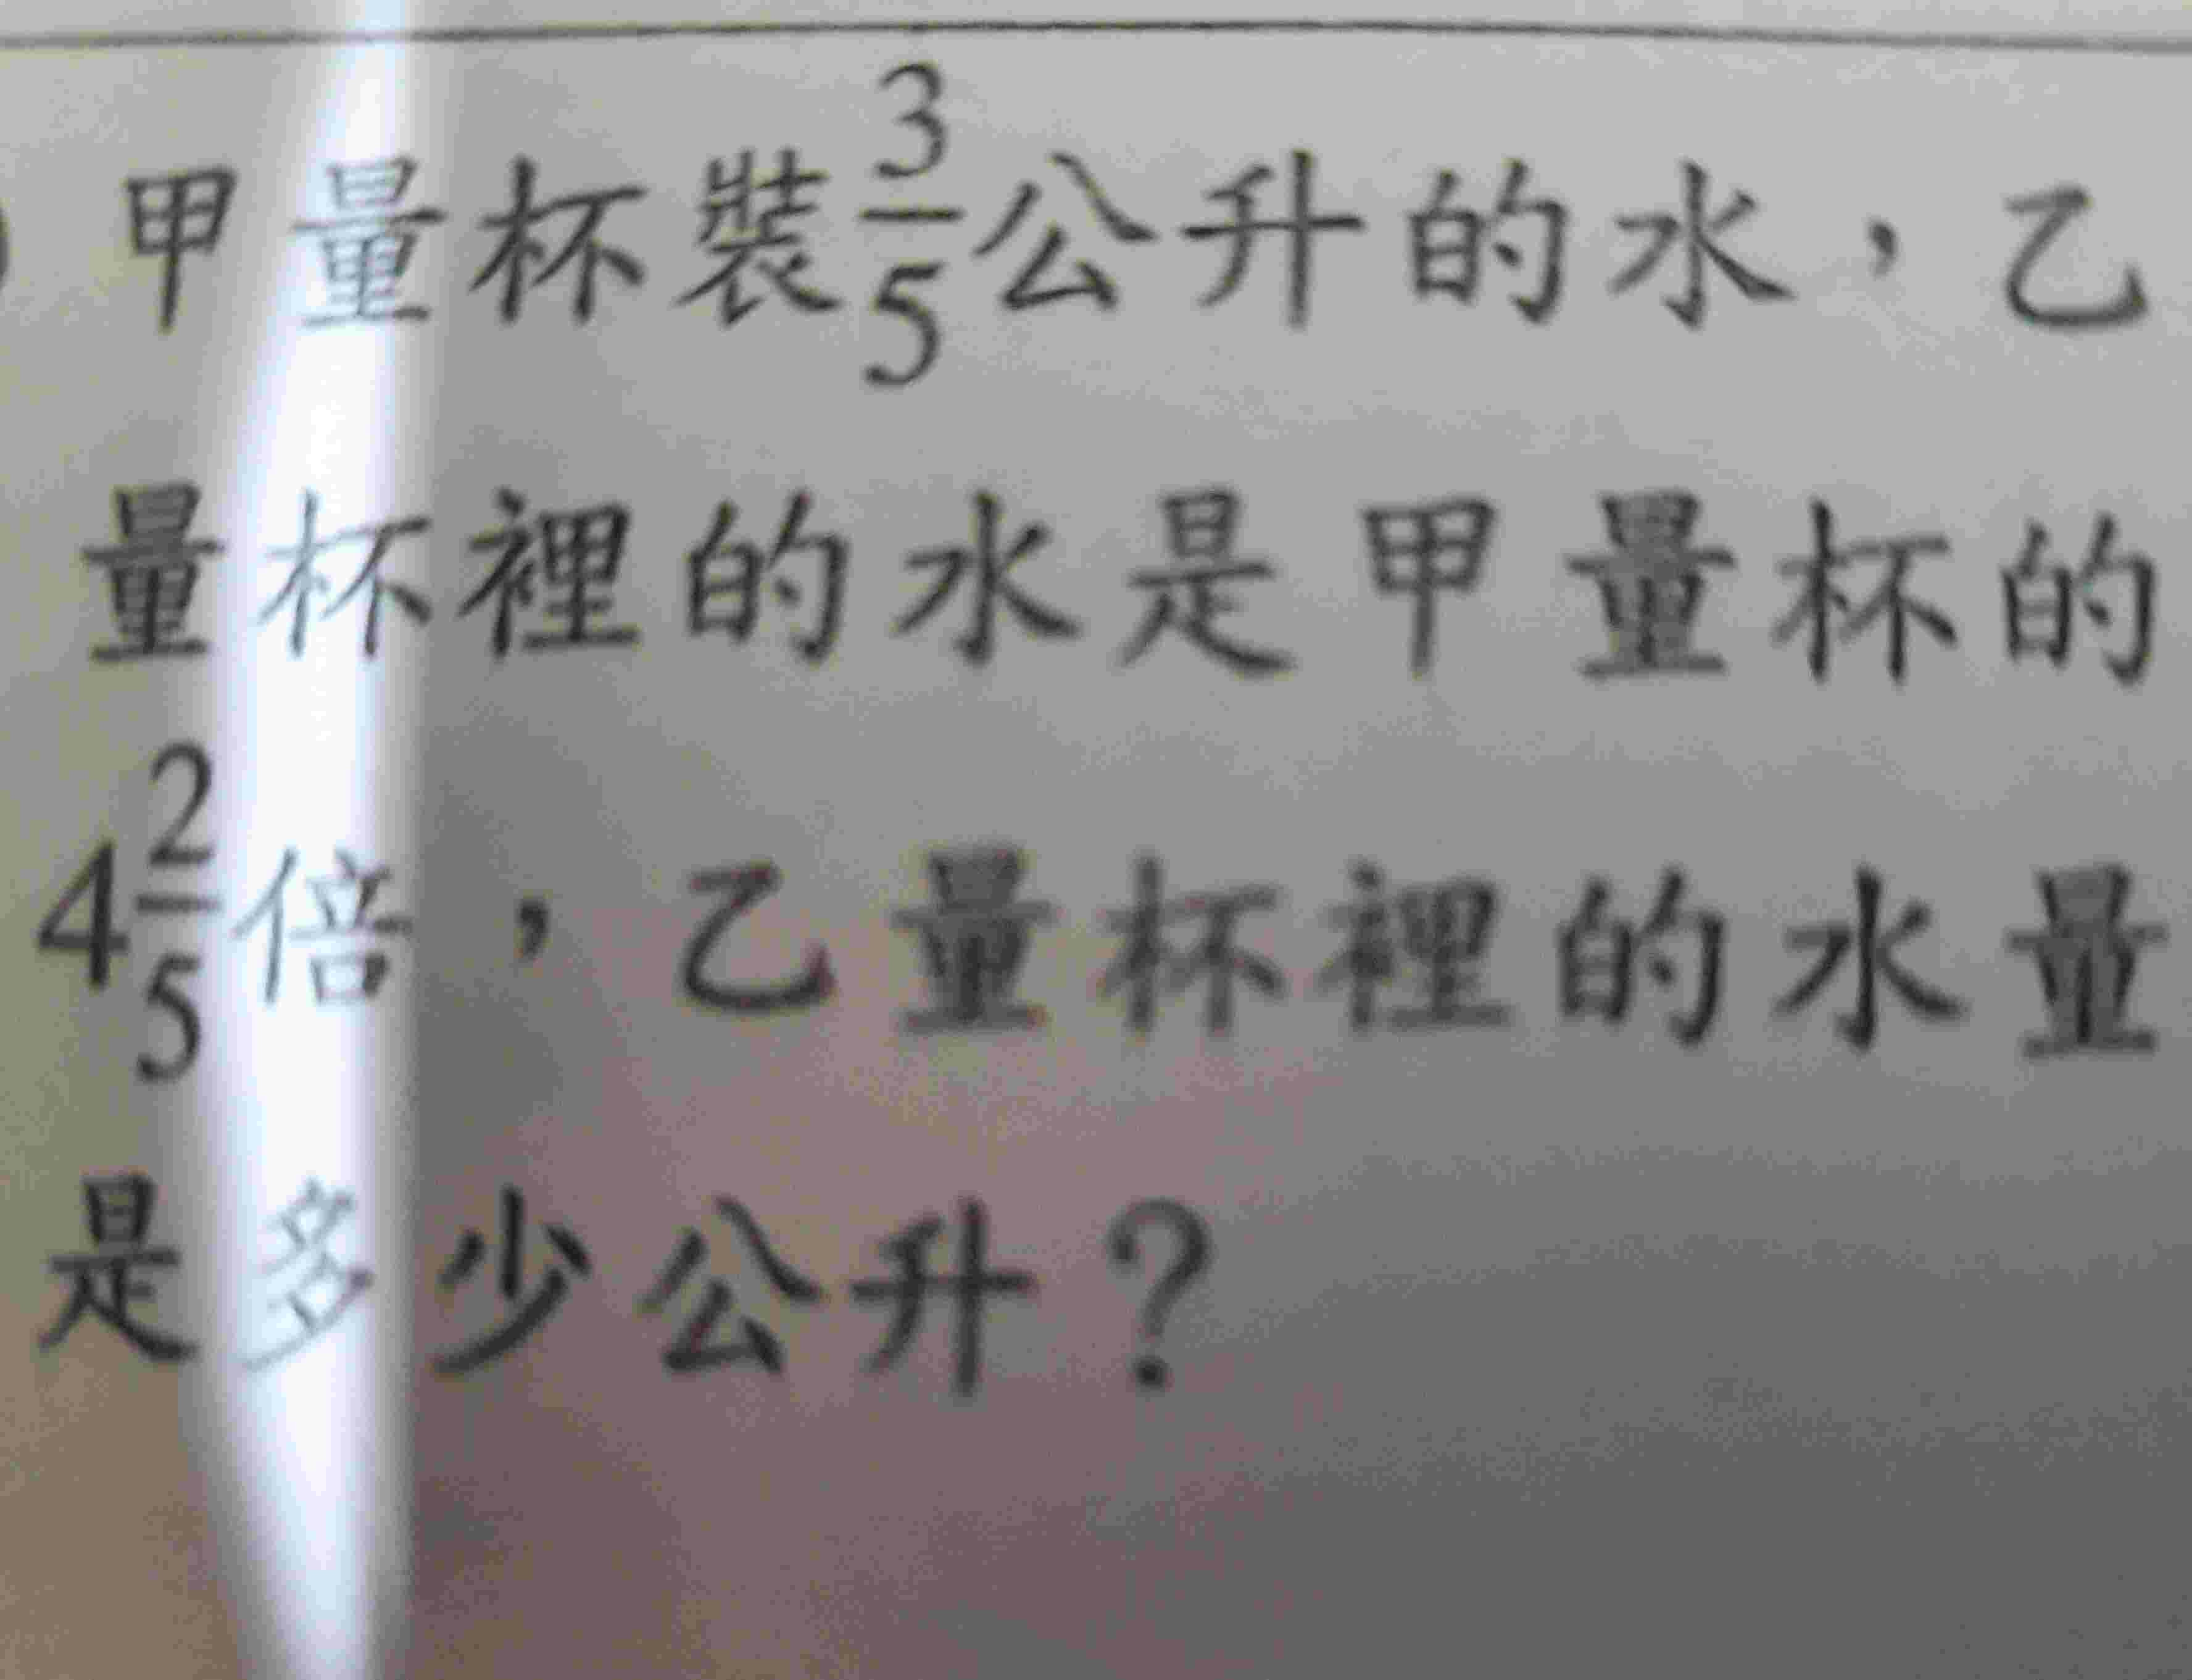 甲量杯裝3/5公升的水，乙
量杯裡的水是甲量杯的
4 2/5倍，乙量杯裡的水量
是多少公升？